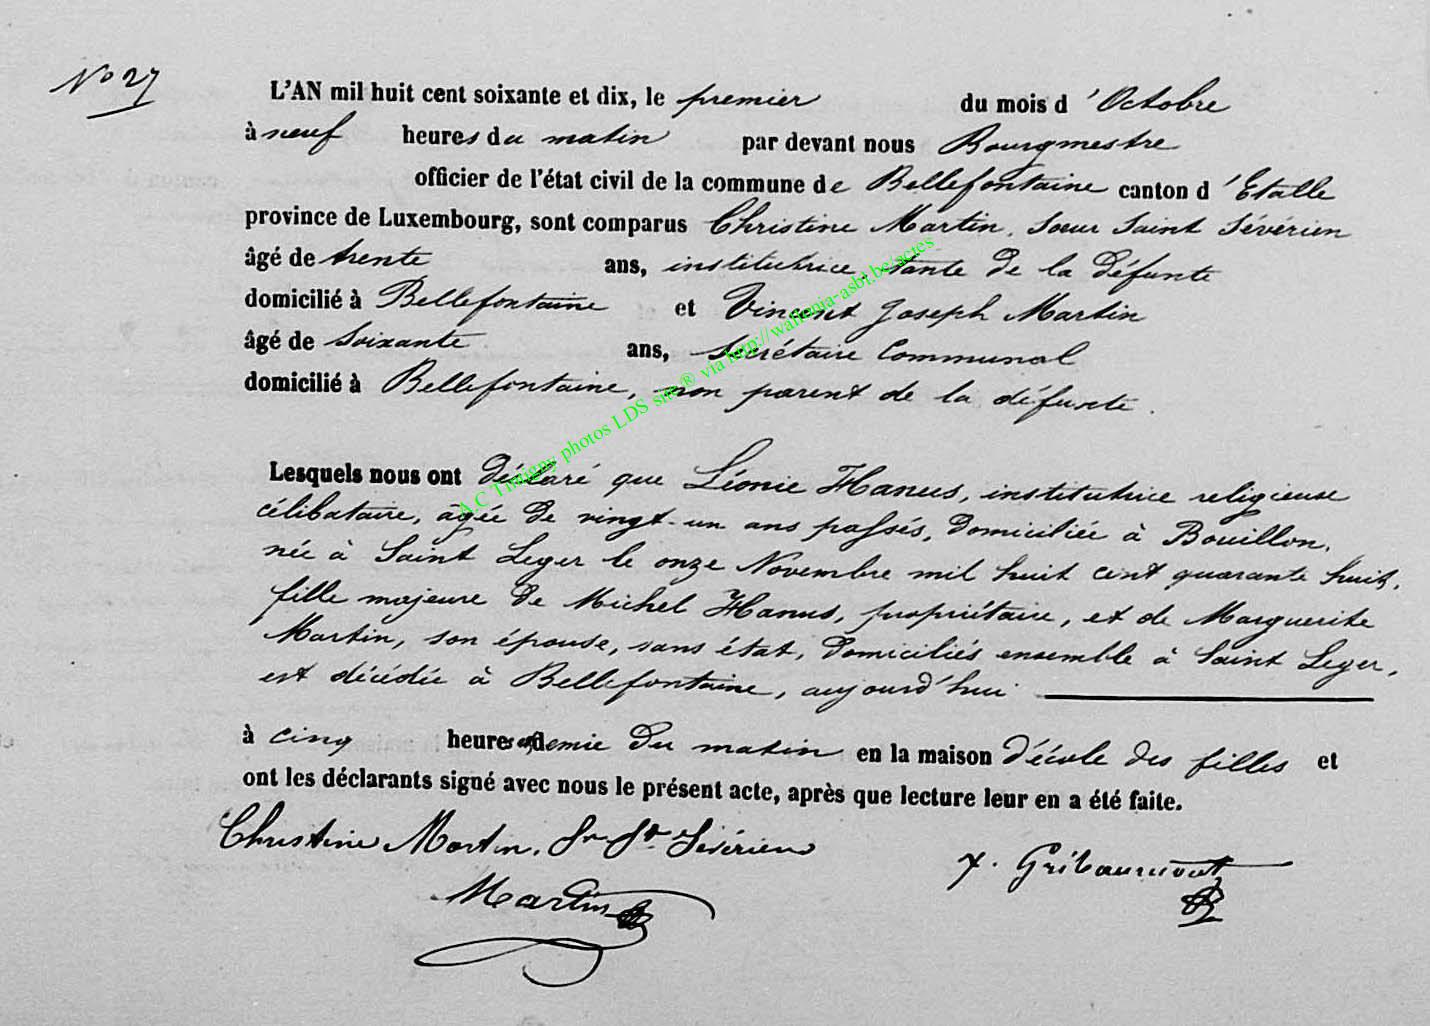 N° 27
L'AN mil huit cent soixante et dix, le premier du mois d'Octobre
à neuf heures du matin par devant nous Bourgmestre
officier de l'état civil de la commune de Bellefontaine canton d'Etalle
province de Luxembourg, sont comparus Christine Martin, Soeur Saint Sévérien
âgé de trente ans, institutrice, tante de la défunte
domicilié à Bellefontaine et Vincent Joseph Martin
âgé de soixante ans, Secrétaire Communal
domicilié à Bellefontaine, non parent de la défunte.
A.C Tintigny photos LDS sur ® via http://wallonia-asbl.be/actes
Lesquels nous ont déclaré que Léonie Hanus, institutrice religieuse
célibataire, âgée de vingt-un ans passés, domiciliée à Bouillon,
née à Saint Leger le onze Novembre mil huit cent quarante huit,
fille majeure de Michel Hanus, propriétaire, et de Marguerite
Martin, son épouse, sans état, domiciliés ensemble à Saint Leger,
est décédée à Bellefontaine, aujourd'hui
à cinq heures et demie du matin en la maison d'école des filles et
ont les déclarants signé avec nous le présent acte, après que lecture leur en a été faite.
Christine Martin, Sr St. Sévérien
Martin